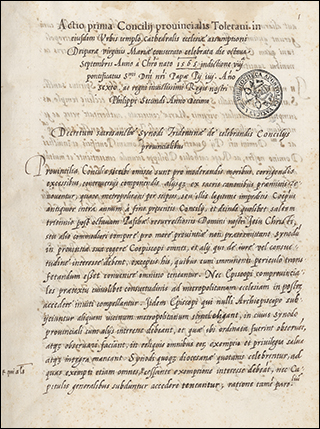 1
Actio prima Concilij prouincialis Toletani in
eiusdem Vrbis templo, Cathedralis ecclesiæ assumptioni
Deiparæ virginis Mariæ consecrato celebrata die octaua
Septembris Anno à Chro nato 1565 indictione
pontificatus Smi Dni nri Papæ Pij iiij. Año
sexto, ac regni inuictissimi Regis nostri
Philippi Secundi Año decimo
Decretum sacrosanctæ Synodi Tridentinæ de celebrandis Concilijs
prouincialibus
Prouincialia Concilia sicubi omissa sunt pro moderandis moribus, corrigendis
excessibus, controuersijs componendis alijsq. ex sacris canonibus permissis re
nouentur, quare metropolitani per seipsos, seu illis legitime impeditis Coepus
antiquior intra annum à fine præsentis Concilij et deinde quolibet saltem
triennio post octauam Paschæ resurrectionis Domini nostri Iesu Christi
seu alio commodiori tempore pro more prouinciæ non prætermittat Synodum
in prouincia sua cogere Coepiscopi omnes, et alij qui de iure vel consue
tudine interesse debent, exceptis his, quibus cum imminenti periculo trans
fretandum esset conuenire omnino teneantur. Nec Episcopi comprouincia
les prætextu cuiuslibet consuetudinis ad metropolitanam ecclesiam in posterum
accedere inuiti compellantur. Itidem Episcopi qui nulli Archiepiscopo sub
iiciuntur aliquem vicinum metropolitanum semel eligant, in cuius Synodo
prouinciali cum alijs interesse debeant, et quæ ibi ordinata fuerint obseruent,
atq. obseruari faciant, in reliquis omnibus eorum exemptio et priuilegia salua
atq. integra maneant. Synodi quoq. diœcesanæ quotannis celebrentur, ad
quas exempti etiam omnes, qui cessante exemptione interesse deberent, nec Ca
pitulis generalibus subduntur accedere teneantur, ratione tamen